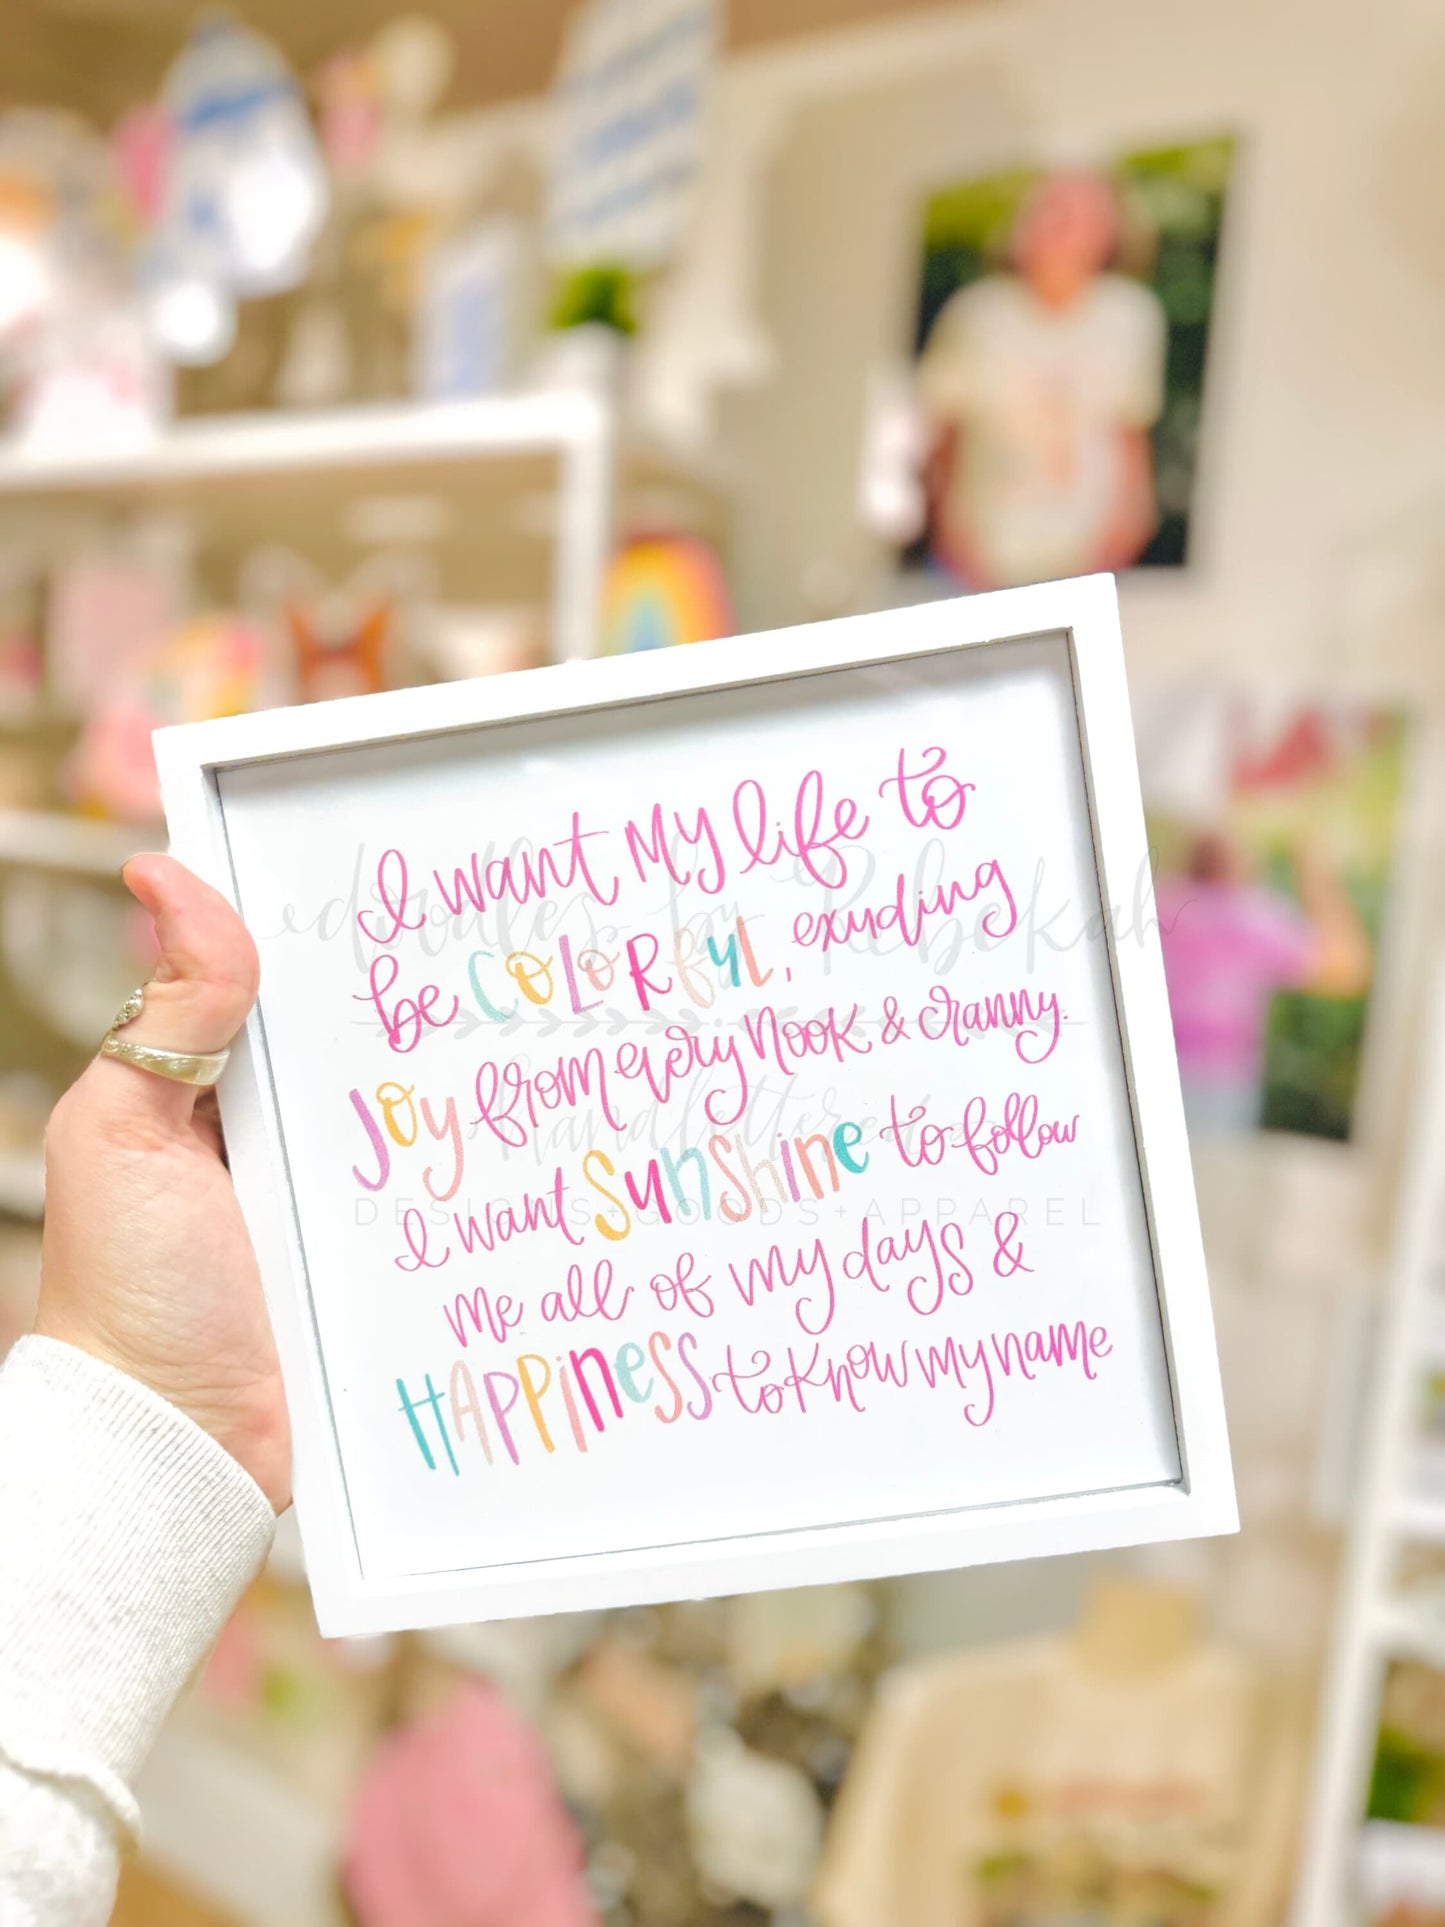 I want my life to
be COLORFUL, exuding
JOY from every nook & cranny.
I want SUNSHINE to follow
me all of my days &
HAPPINESS to know my name
doodles by Rebekah
handlettered
DESIGNS+GOODS+APPAREL